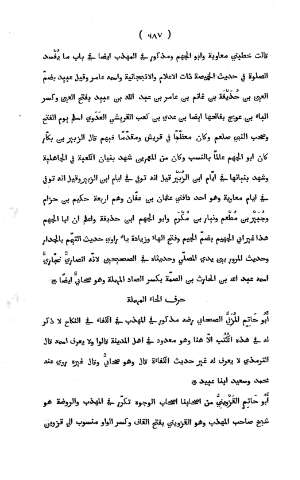 ( ٦٨٧ )
قالت خطبني معاوية وابو الجهم ومذكور في المهذب ايضا في باب ما يفسد
الصلوة في حديث الخميصة ذات الاعلام والانبجانية واسمه عامر وقيل عبيد بضم
العين بن حُذَيْفَة بن غانم بن عامر بن عبد الله بن عبيد بفتح العين وكسر
الباء بن عويج بفتحها ايضا بن عدي بن كعب القرشي العَدَوي اسلم يوم الفتح
وصحب النبي صلعم وكان معظّما في قريش ومقدّما فيهم قال الزبير بن بكّار
كان ابو الجهم عالمًا بالنسب وكان من المعمرين شهد بنيان الكعبة في الجاهلية
وشهد بنيانها في ايّام ابن الزُبَيْر قيل انه توفي في ايام ابن الزبير وقيل انه توفي
في ايام معاوية وهو احد دافني عثمان بن عفان وهم اربعة حكيم بن حزام
وجُبَيْر بن مُطْعِم ونيار بن مُكْرَم وابو الجهم ابن حذيفة واعلم ان ابا الجهم
هذا غير ابي الجهيم بضمّ الجيم وفتح الهاء وزيادة ياء راوي حديث التيمّم بالجدار
وحديث المرور بين يدي المصلّي وحديثاه في الصحيحين لانه انصاريّ نجّاريّ
اسمه عبد الله بن الحارث بن الصمّة بكسر الصاد المهملة وهو صحابيّ ايضا ۞
حرف الحاء المهملة
أَبُو حَاتِم الْمُزَنِيّ الصحابي رضه مذكور في المهذب في الكفاءة في النكاح لا ذكر
له في هذه الكُتُب الّا هنا وهو معدود في اهل المدينة قالوا ولا يعرف اسمه قال
الترمذي لا يعرف له غير حديث الكفاءة قال وهو صحابيّ وقال غيره روى عنه
محمد وسعيد ابنا عبيد ۞
أَبُو حَاتِم القَزْوِينِيّ من اصحابنا اصحاب الوجوه تكرّر في المهذب والروضة هو
شيخ صاحب المهذب وهو القزويني بفتح القاف وكسر الواو منسوب الى قزوين